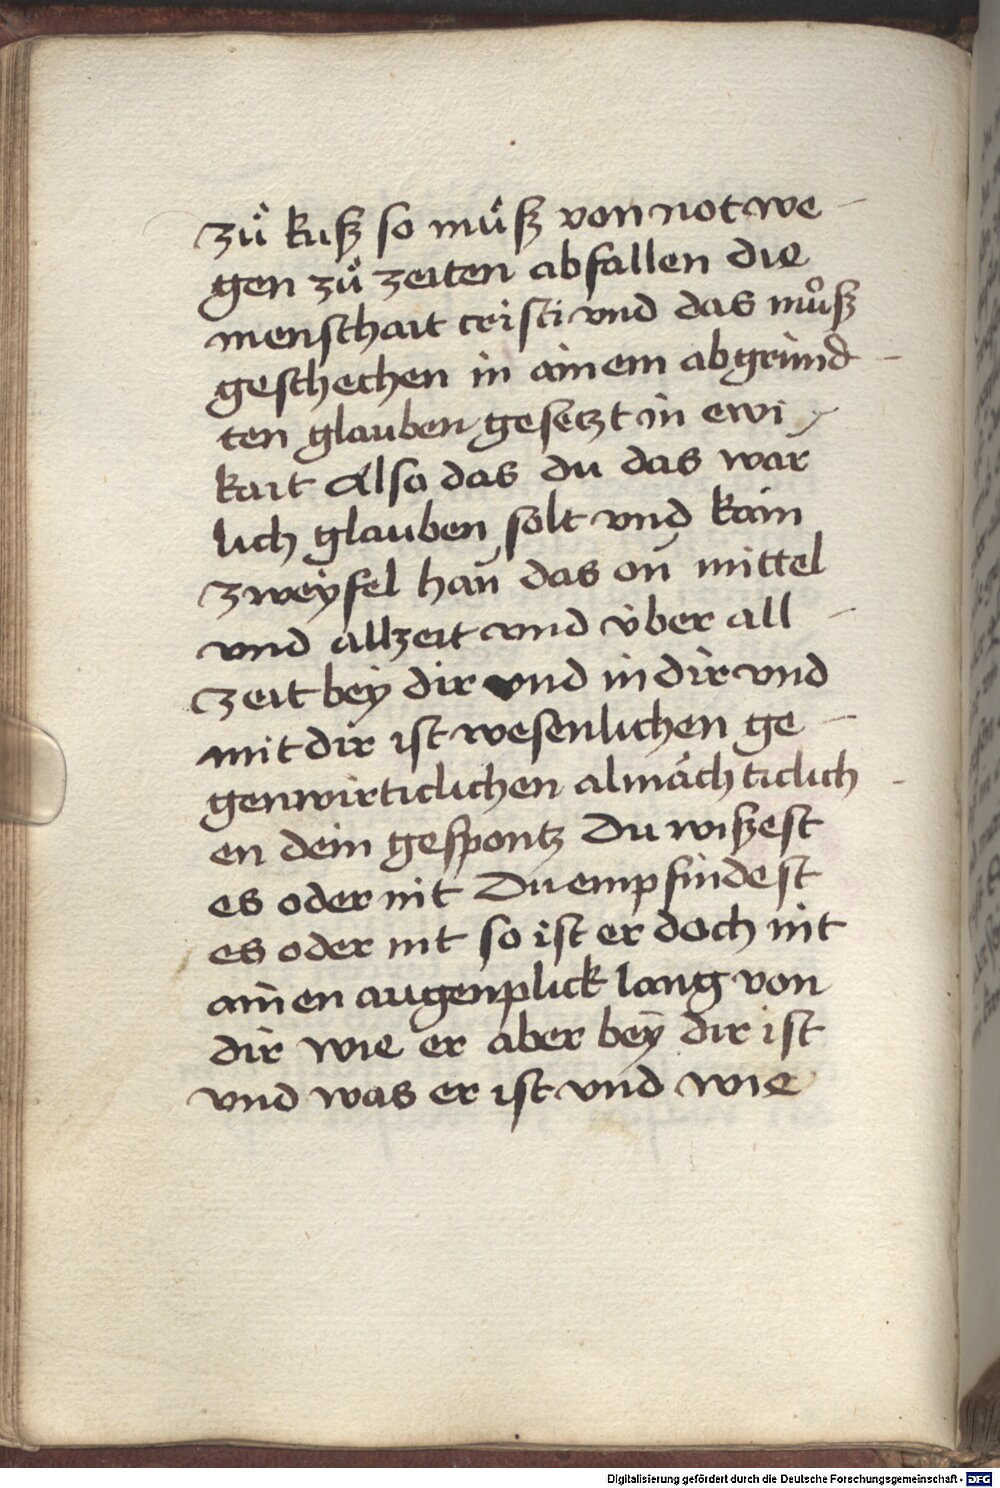 zů kusz so můsz von not we-
gen zů zeiten abfallen die
menschait cristi vnd das můsz
geschechen in ainem abgrund-
ten glauben gesetzt in ewi-
kait Also das du das war
lich glauben solt vnd kain
zweyfel han das on mittel
vnd allzeit vnd über all-
zeit bey dir vnd in dir vnd
mit dir ist wesenlichen ge-
genwirticlichen almächticlich-
en dein gespontz Du wiszest
es oder nit Du empfindest
es oder nit so ist er doch nit
ainen augenplick lang von
dir wie er aber bey dir ist
vnd was er ist vnd wie
Digitalisierung gefördert durch die Deutsche Forschungsgemeinschaft - DFG